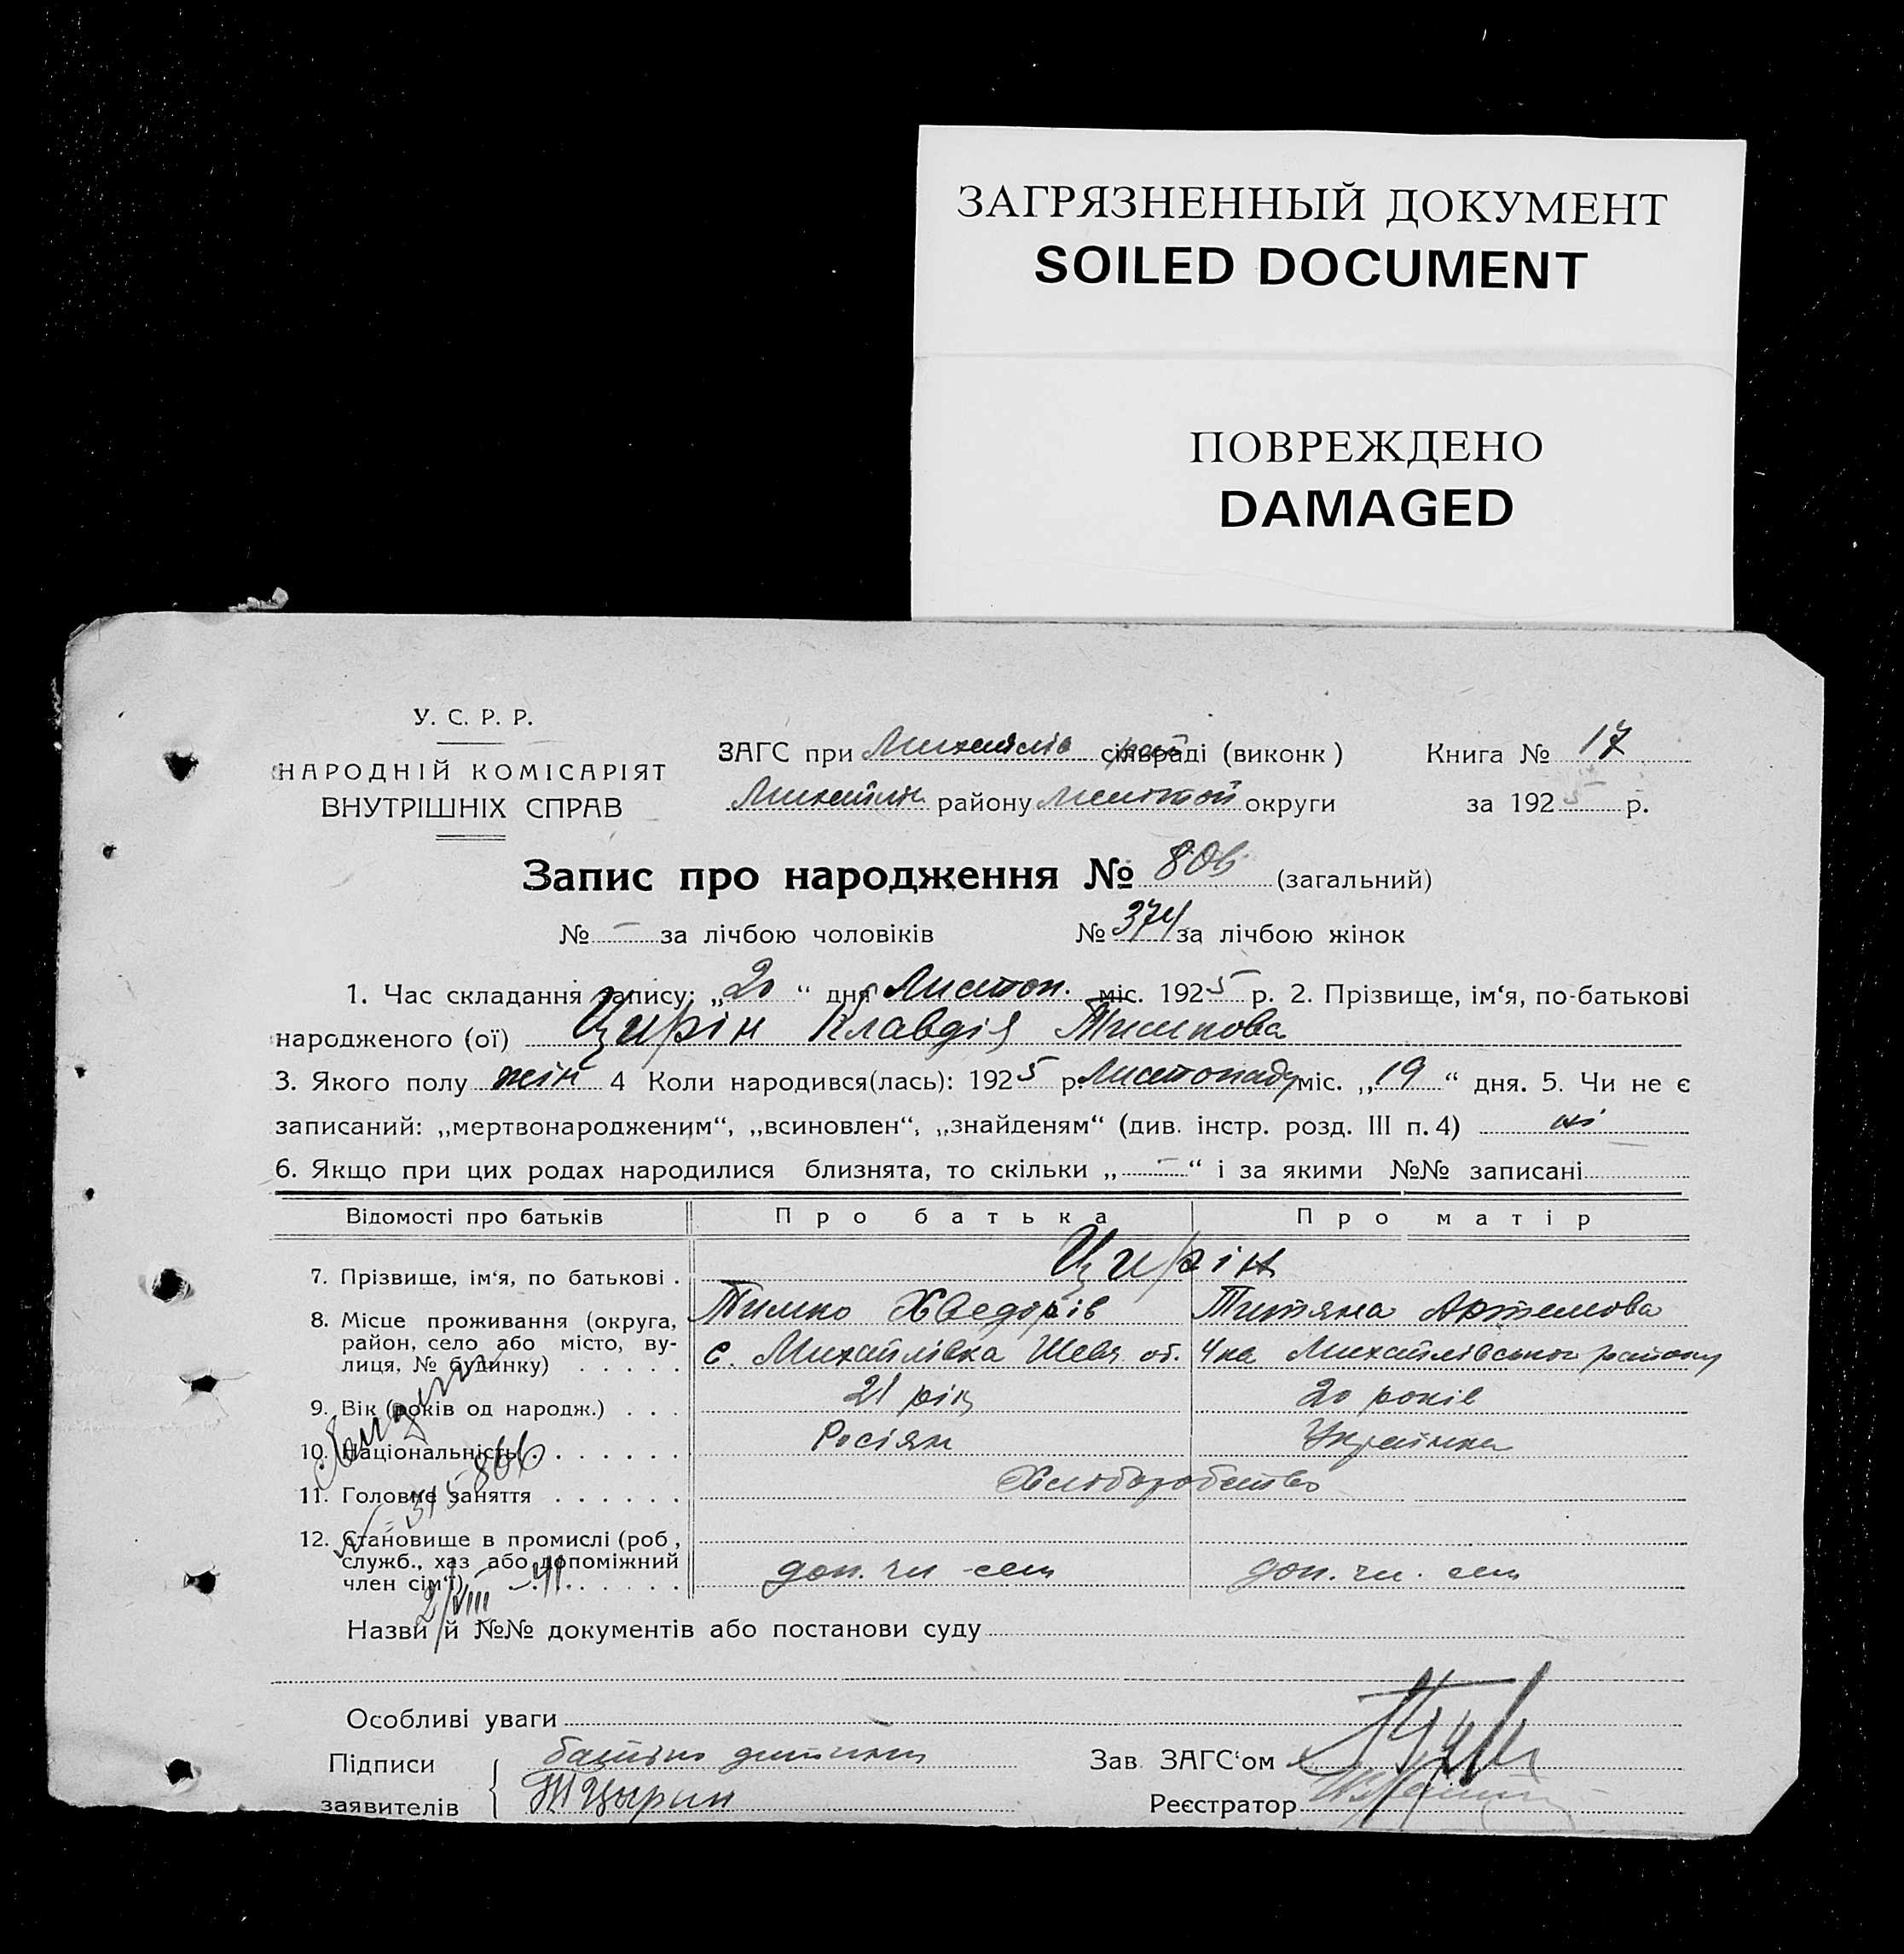 ЗАГРЯЗНЕННЫЙ ДОКУМЕНТ
SOILED DOCUMENT
ПОВРЕЖДЕНО
DAMAGED
У. С. Р. Р.
НАРОДНІЙ КОМІСАРІЯТ
ВНУТРІШНІХ СПРАВ
ЗАГС при Михайлів сільраді (виконк) Книга № 17
Михайлів району округи за 1925 р.
Запис про народження № 806 (загальний)
№ – за лічбою чоловіків № 374 за лічбою жінок
1. Час складання запису: „20“ дня Листоп. міс. 1925 р. 2. Прізвище, ім‘я, по-батькові
народженого (ої) Цирін Клавдія Тимкова
3. Якого полу жін 4 Коли народився(лась): 1925 р. Листопаду міс. „19“ дня. 5. Чи не є
записаний: „мертвонародженим“, „всиновлен“, „знайденям“ (див. інстр. розд. III п. 4) ні
6. Якщо при цих родах народилися близнята, то скільки „–“ і за якими №№ записані
Відомості про батьків Про батька Про матір
7. Прізвище, ім‘я, по батькові . Цирін
Тимко Хведорів Титяна Артемова
8. Місце проживання (округа,
район, село або місто, ву-
лиця, № будинку) . . . . . с. Михайлівка Шевч. об. Михайлівського району
9. Вік (років од народж.) . . . 21 рік 20 років
10. Національність . . . . . . . Росіян Українка
11. Головне заняття . . . . . . Хлиборобство
12. Становище в промислі (роб.,
служб., хаз або допоміжний
член сім‘ї) . . . . . . . доп. чл. сем доп. чл. сем
2/VIII – 41
Назви й №№ документів або постанови суду
Особливі уваги
Підписи батько дитини Зав ЗАГС‘ом
заявителів Т Цырин Реєстратор